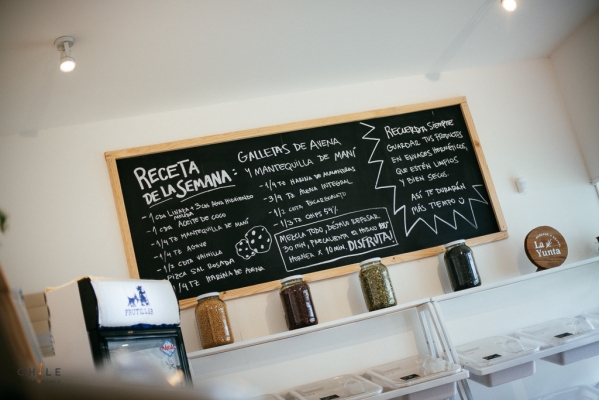 RECETA
DE LA SEMANA:
GALLETAS DE AVENA
Y MANTEQUILLA DE MANÍ
- 1 CDA LINAZA + 3CDA AGUA HIRVIENDO
MOLIDA
- 1 CDA ACEITE DE COCO
- 1/4 TZ MANTEQUILLA DE MANÍ
- 1/4 TZ AGAVE
- 1/2 CDTA VAINILLA
- PIZCA SAL ROSADA
- 1/4 TZ HARINA DE AVENA
- 1/4 TZ HARINA DE ALMENDRAS
- 3/4 TZ AVENA INTEGRAL
- 1/2 CDTA BICARBONATO
- 1/3 TZ CHIPS 54%
MEZCLA TODO, DÉJALA REPOSAR
30 MIN, PRECALIENTA EL HORNO
HORNEA X 10 MIN. DISFRUTA!
RECUERDA SIEMPRE
GUARDAR TUS PRODUCTOS
EN ENVASES HERMÉTICOS,
QUE ESTÉN LIMPIOS
Y BIEN SECOS.
ASÍ TE DURARÁN
MÁS TIEMPO
La
Yunta
FRUTILLS
CHILE